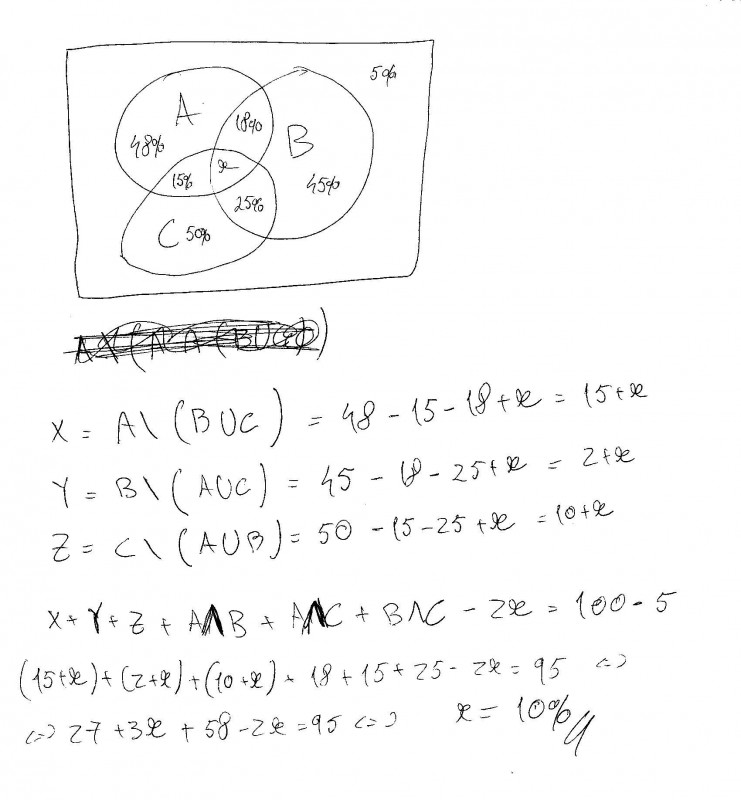 5%
A
18%
B
48%
x
15%
45%
25%
C 50%
X = A \ (B U C) = 48 - 15 - 18 + x = 15 + x
Y = B \ (A U C) = 45 - 18 - 25 + x = 2 + x
Z = C \ (A U B) = 50 - 15 - 25 + x = 10 + x
X + Y + Z + A ∩ B + A ∩ C + B ∩ C - 2x = 100 - 5
(15+x) + (2+x) + (10+x) + 18 + 15 + 25 - 2x = 95 <=>
<=> 27 + 3x + 58 - 2x = 95 <=> x = 10%